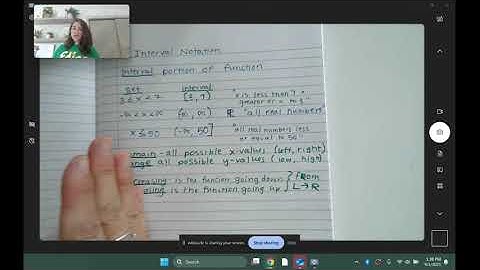 Interval Notation
Interval portion of function
Set Interval
3 ≤ x < 7 [3, 7) "x is less than 7 greater or = to 3"
-∞ < x < ∞ (-∞, ∞) ℝ "all real numbers"
x ≤ 50 (-∞, 50] "all real numbers less or equal to 50"
main - all possible x-values (left, right)
ange all possible y-values (low, high)
creasing is the function going down } from
is the function going up } L → R
is sharing your screen. Stop sharing
Search
1:38 PM